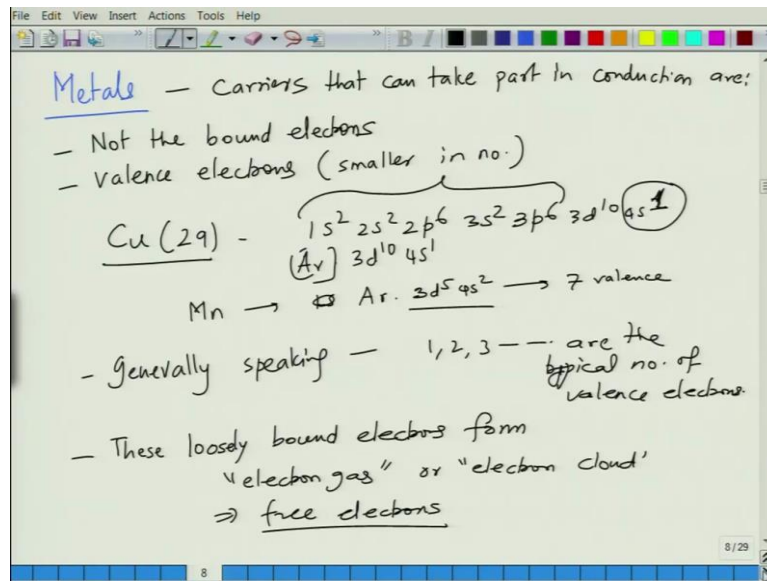 File Edit View Insert Actions Tools Help
Metals — Carriers that can take part in conduction are:
— Not the bound electrons
— Valence electrons (smaller in no.)
Cu (29) - 1s² 2s² 2p⁶ 3s² 3p⁶ 3d¹⁰ 4s¹
[Ar] 3d¹⁰ 4s¹
Mn → Ar. 3d⁵ 4s² → 7 valence
- Generally speaking — 1, 2, 3 — — . are the
typical no. of
valence electrons.
— These loosely bound electrons form
"electron gas" or "electron cloud'
⇒ free electrons
8/29
8